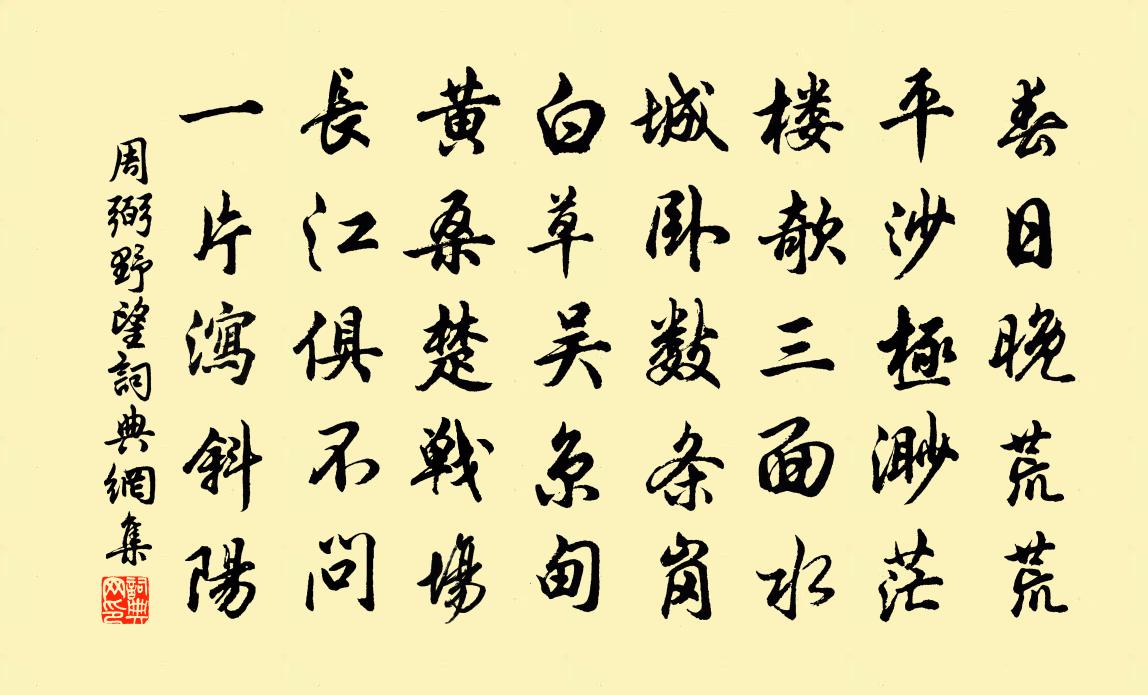 春日晚荒荒
平沙極渺茫
楼欹三面水
城卧数条岗
白草吴京甸
黄桑楚戦場
長江俱不問
一片瀉斜陽
周弼野望詞典網集
詞典